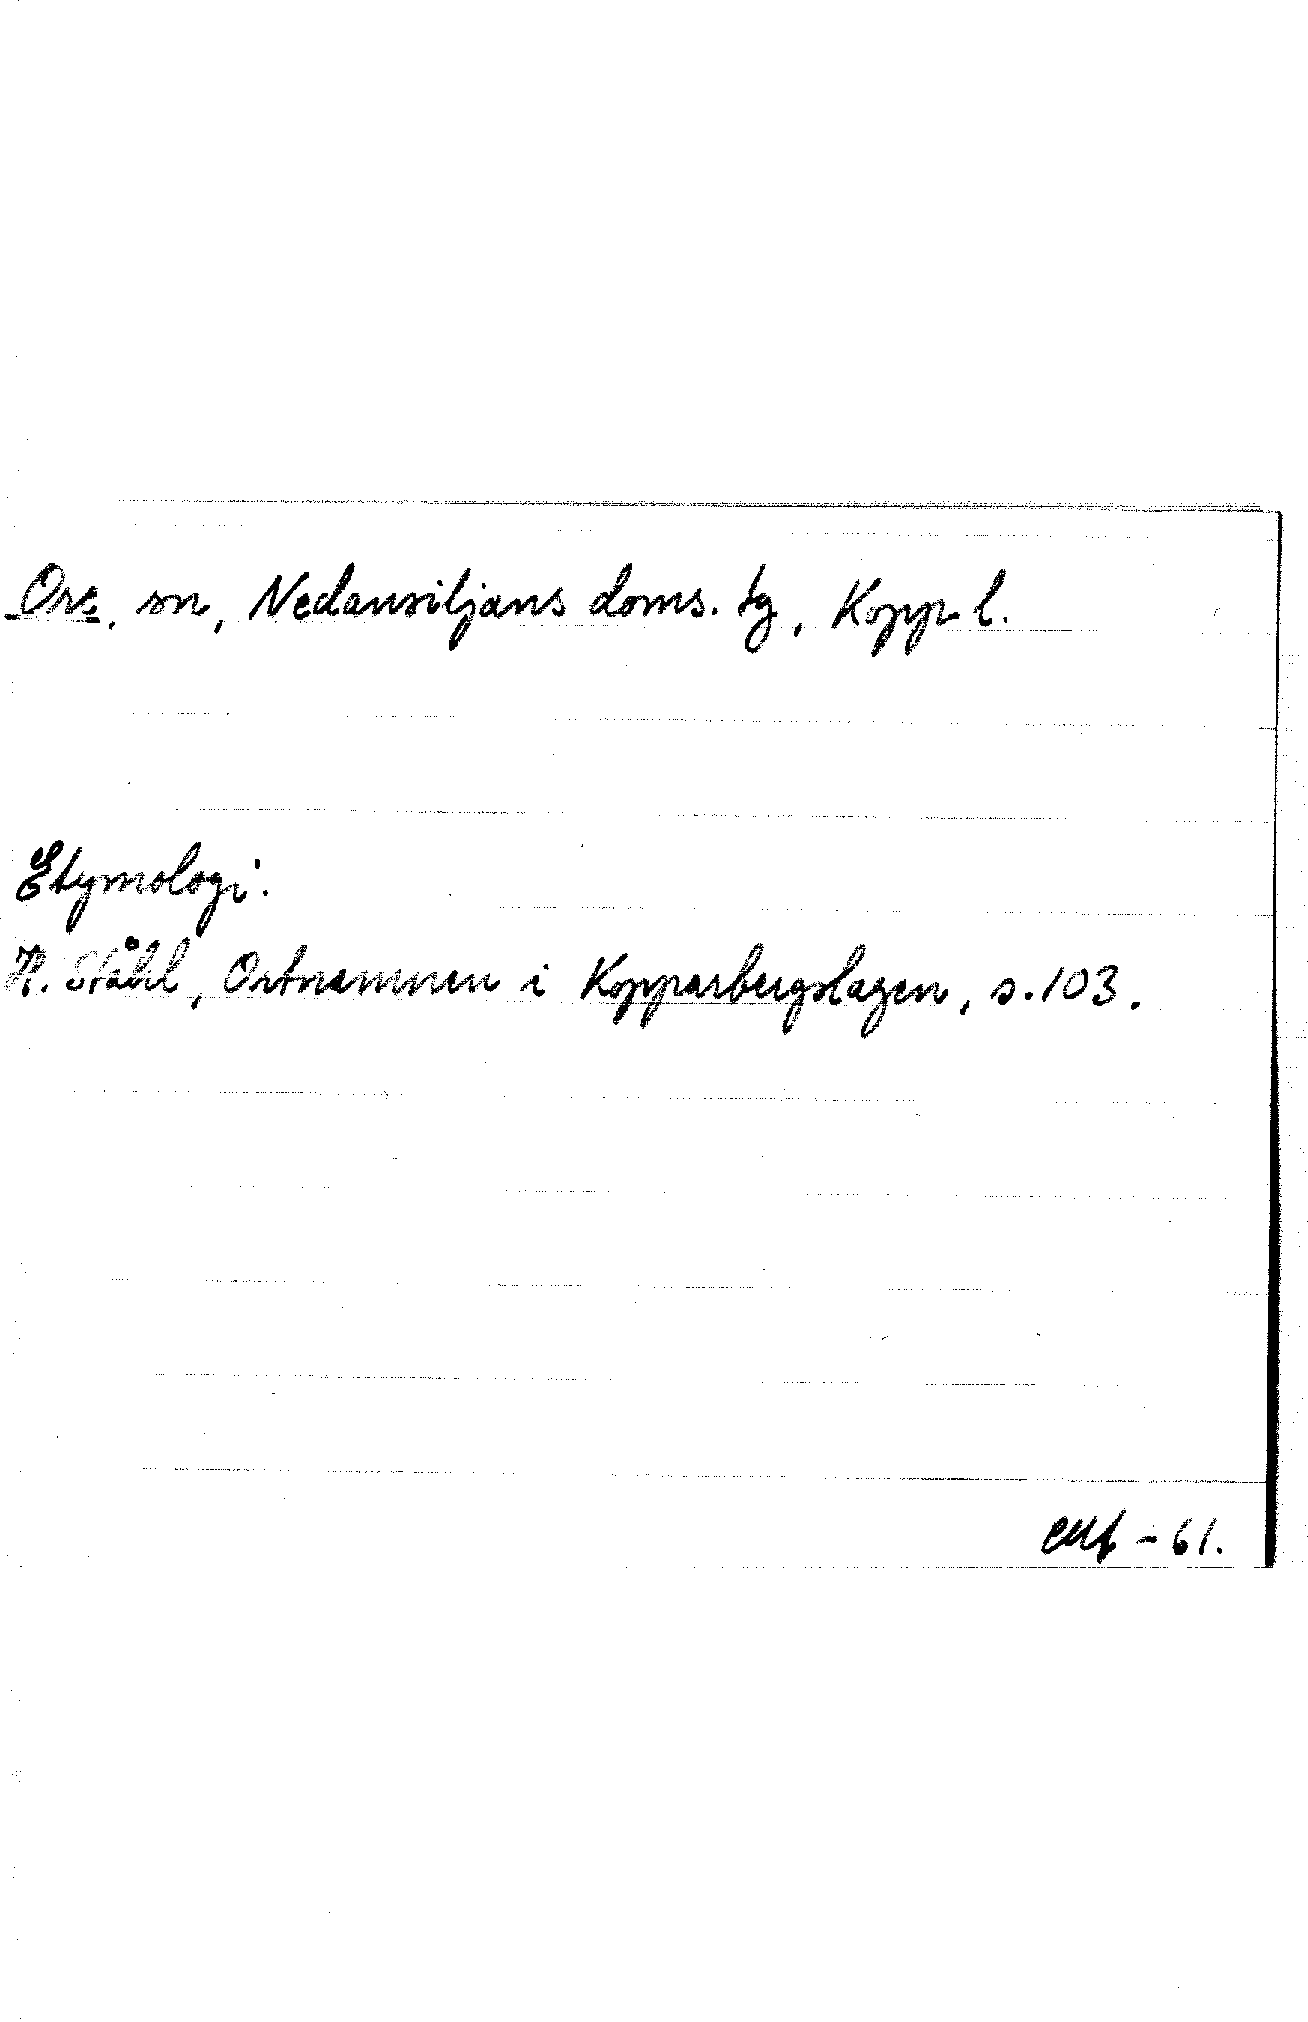 Ore, sn, Nedansiljans doms. tg, Kopp. l.
Etymologi.
H. Ståhl, Ortnamnen i Kopparbergslagen, s. 103.
- 61.